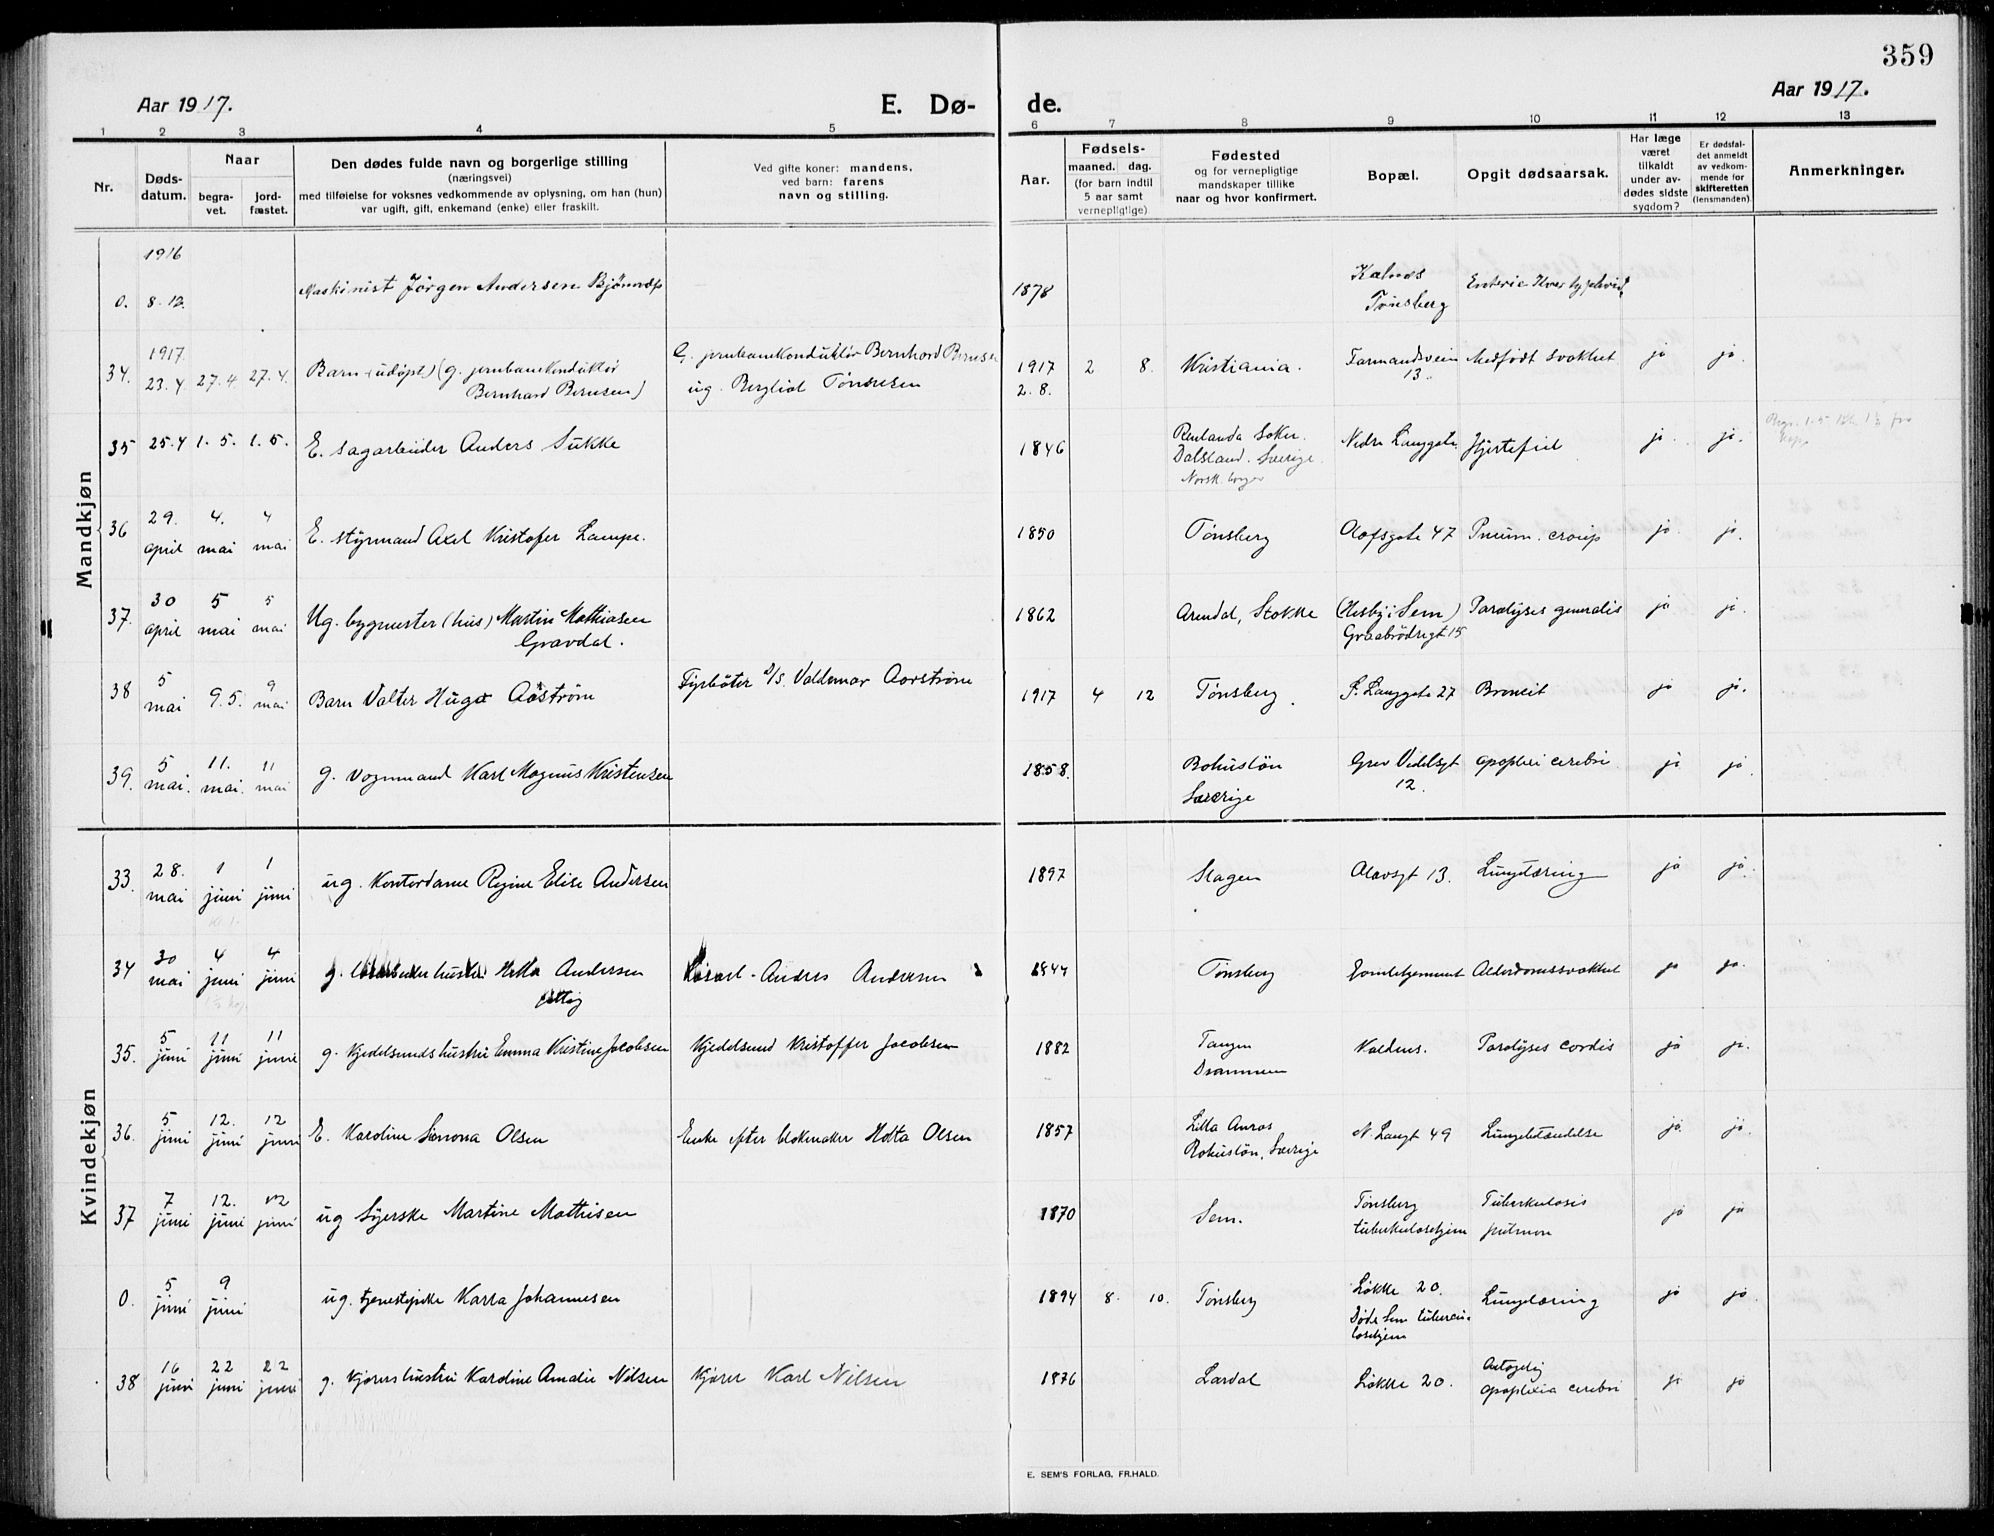 359
Aar 1917.
E. Dø-
de.
Aar 1917.
1 2 3 4 5 6 7 8 9 10 11 12 13
Nr.
Døds-
datum.
Naar
begra-
vet.
jord-
fæstet.
Den dødes fulde navn og borgerlige stilling
(næringsvei)
med tilføielse for voksnes vedkommende av oplysning, om han (hun)
var ugift, gift, enkemand (enke) eller fraskilt.
Ved gifte koner: mandens,
ved barn: farens
navn og stilling.
Aar.
Fødsels-
maaned. dag.
(for barn indtil
5 aar samt
vernepligtige)
Fødested
og for vernepligtige
mandskaper tillike
naar og hvor konfirmert.
Bopæl.
Opgit dødsaarsak.
Har læge
været
tilkaldt
under av-
dødes sidste
sygdom?
Er dødsfal-
det anmeldt
av vedkom-
mende for
skifteretten
(lensmanden)
Anmerkninger.
Mandkjøn
1916
0. 8-12. Maskinist Jörgen Andersen 1878 Kalnes
Tönsberg
Enteric
1917.
34. 23.4 27.4. 27.4. Barn (udöpt) (g. jernbanekonduktör
Bernhard Berntsen)
G. jernbanekonduktör Bernhard
ug. Bergliot Tönnesen
1917 2 8. Kristiania. Farmandsveien
13.
Medfödt svakhet ja ja.
2. 8.
35 25.4 1.5. 1.5. E. sagarbeider Anders Sukke 1846
Dalsland. Sverige.
Norsk borger
Nedre Langgate Hjertefeil ja. ja.
36 29.
april
4.
mai
4
mai
E. styrmand Axel Kristofer Lampe. 1850 Tönsberg Olafsgate 47 Pneum. croup ja. ja.
37. 30
april
5
mai
5
mai
Ug. bygmester (hus) Martin Mathiasen
Gravdal.
1862 Arendal, Stokke (Husby i Sem)
Graabrödregt 15
Paralyses generalis ja ja.
38 5
mai
9.5. 9
mai
Barn Valter Hugo Aaström Fyrböter Valdemar Aarström 1917 4 12 Tönsberg. S. Langgate 27 Broncit ja ja.
39. 5
mai.
11.
mai.
11
mai
g. vognmand Karl Magnus Kristensen 1858. Bohuslön
Sverige
Grev Vedelsgt
12.
apoplexi cerebri ja ja.
Kvindekjøn
33. 28.
mai
1
juni
1
juni
ug. Kontordame Regine Elise Andersen 1897 Slagen Olavsgt 13. Lungetæring ja ja.
34 30
mai
4
juni
4
juni
g. Andersen
Anders Andersen 1844 Tönsberg Gamlehjemmet Alderdomssvakhet ja ja.
35. 5
juni
11
juni
11
juni
g. Kjedelsmeds hustru Emma Kristine Jacobsen Kjedelsmed Kristoffer Jacobsen 1882 Tangen
Drammen
Kaldnes. Paralyses cordis ja ja.
36. 5
juni
12.
juni
12
juni
E. Karoline Simona Olsen Enke efter blokmaker Olsen 1857
Bohuslön, Sverige
N. Langt 49 Lungebetændelse ja. ja.
37 7
juni
12.
juni
12
juni
ug Syerske Martine Mathisen 1870 Sem. Tönsberg
tuberkulosehjem
Tuberkulosis
pulmon
ja ja
0. 5
juni
9
juni
ug. tjenestepike Karra Johannesen 1894 8. 10. Tönsberg Løkke 20.
Döde Sem tubercu-
losehjem
Lungetæring ja ja
38 16
juni
22
juni
22
juni
g. Kjörers hustru Karoline Amalie Nilsen Kjörer Karl Nilsen 1876 Lardal Løkke 20.
apoplexia cerebri ja ja
E. SEM'S FORLAG, FR.HALD.